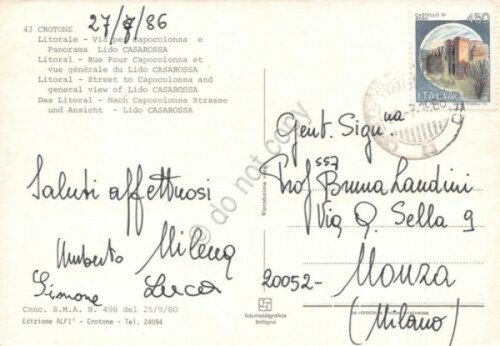 27/7/86
43 CROTONE
Litorale - Via per Capocolonna e
Panorama Lido CASAROSSA
Litoral - Rue Pour Capocolonna et
vue générale du Lido CASAROSSA
Litoral - Street to Capocolonna and
general view of Lido CASAROSSA
Das Litoral - Nach Capocolonna Strasse
und Ansicht - Lido CASAROSSA
Saluti affettuosi
Umberto Milena
Simone Luca
Conc. S.M.A. N. 498 del 25/9/80
Edizione ALFI' - Crotone - Tel. 24094
fotometalgrafica
bologna
CASTELLO DI
450
ITALIA
Gent. Sig.na
Prof.ssa Bruna Landini
Via Q. Sella 9
20052- Monza
(Milano)
do not copy